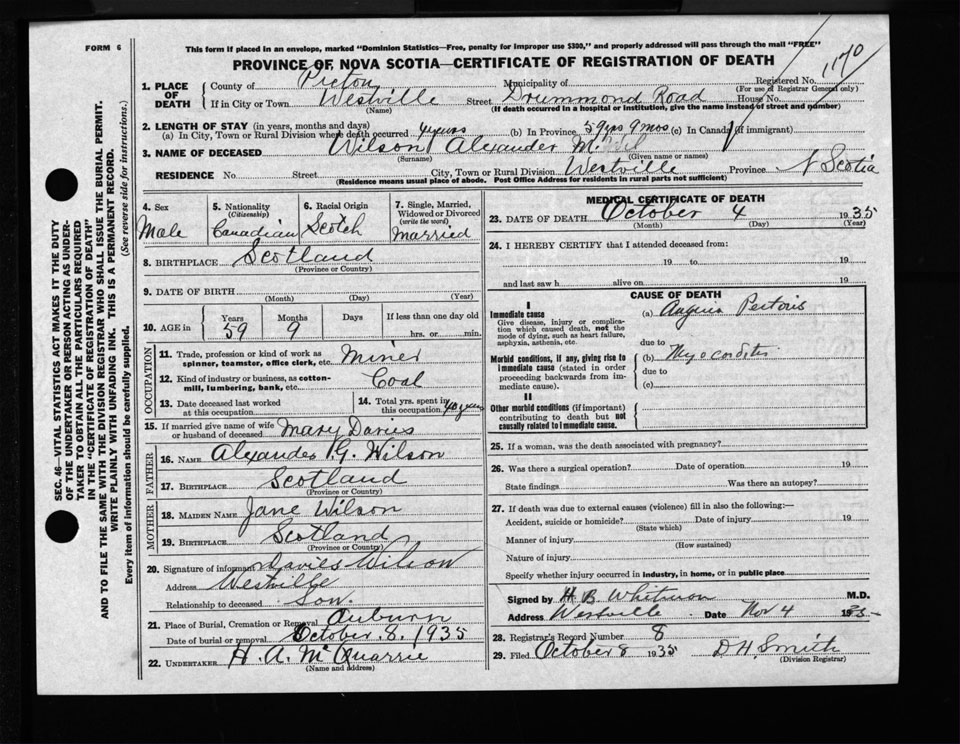 FORM 6
This form if placed in an envelope, marked "Dominion Statistics—Free, penalty for improper use $300," and properly addressed will pass through the mail "FREE"
PROVINCE OF NOVA SCOTIA—CERTIFICATE OF REGISTRATION OF DEATH
SEC. 46—VITAL STATISTICS ACT MAKES IT THE DUTY
OF THE UNDERTAKER OR PERSON ACTING AS UNDER-
TAKER TO OBTAIN ALL THE PARTICULARS REQUIRED
IN THE "CERTIFICATE OF REGISTRATION OF DEATH"
AND TO FILE THE SAME WITH THE DIVISION REGISTRAR WHO SHALL ISSUE THE BURIAL PERMIT.
WRITE PLAINLY WITH UNFADING INK. THIS IS A PERMANENT RECORD.
Every item of information should be carefully supplied. (See reverse side for instructions.)
1. PLACE OF DEATH
County of Pictou Municipality of Registered No. 1170
(For use of Registrar General only)
If in City or Town Westville Street Drummond Road House No.
(Name) (If death occurred in a hospital or institution, give the name instead of street and number)
2. LENGTH OF STAY (in years, months and days)
(a) In City, Town or Rural Division where death occurred years (b) In Province 59 yrs 9 mos (c) In Canada (if immigrant)
3. NAME OF DECEASED Wilson Alexander M.
(Surname) (Given name or names)
RESIDENCE No. Street City, Town or Rural Division Westville Province N Scotia
(Residence means usual place of abode. Post Office Address for residents in rural parts not sufficient)
4. Sex Male
5. Nationality (Citizenship) Canadian
6. Racial Origin Scotch
7. Single, Married, Widowed or Divorced (write the word) Married
8. BIRTHPLACE Scotland
(Province or Country)
9. DATE OF BIRTH
(Month) (Day) (Year)
10. AGE in Years 59 Months 9 Days If less than one day old hrs. or min.
OCCUPATION
11. Trade, profession or kind of work as spinner, teamster, office clerk, etc. Miner
12. Kind of industry or business, as cotton-mill, lumbering, bank, etc. Coal
13. Date deceased last worked at this occupation
14. Total yrs. spent in this occupation 40 years
15. If married give name of wife or husband of deceased Mary Davies
FATHER
16. Name Alexander G. Wilson
17. Birthplace Scotland
(Province or Country)
MOTHER
18. Maiden Name Jane Wilson
19. Birthplace Scotland
(Province or Country)
20. Signature of informant Davies Wilson
Address Westville
Relationship to deceased Son.
21. Place of Burial, Cremation or Removal Auburn
Date of burial or removal October. 8. 1935
22. Undertaker H. A. McQuarrie
(Name and address)
MEDICAL CERTIFICATE OF DEATH
23. DATE OF DEATH October 4 1935
(Month) (Day) (Year)
24. I HEREBY CERTIFY that I attended deceased from:
19 to 19
and last saw h alive on 19
CAUSE OF DEATH
I
Immediate cause
Give disease, injury or complication which caused death, not the mode of dying, such as heart failure, asphyxia, asthenia, etc.
(a) Angina Pectoris
due to
Morbid conditions, if any, giving rise to immediate cause (stated in order proceeding backwards from immediate cause).
(b) Myocarditis
due to
(c)
II
Other morbid conditions (if important) contributing to death but not causally related to immediate cause.
25. If a woman, was the death associated with pregnancy?
26. Was there a surgical operation? Date of operation 19
State findings Was there an autopsy?
27. If death was due to external causes (violence) fill in also the following:—
Accident, suicide or homicide? Date of injury 19
(State which)
Manner of injury
(How sustained)
Nature of injury
Specify whether injury occurred in industry, in home, or in public place
Signed by H. B. Whitman M.D.
Address Westville Date Nov 4 1935
28. Registrar's Record Number 8
29. Filed October 8 1935 D H Smith
(Division Registrar)